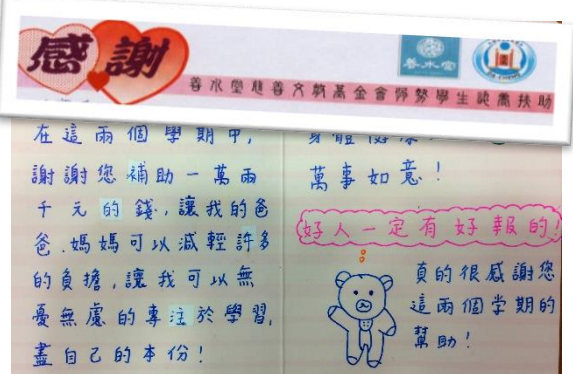 感謝
善水堂慈善文教基金會弱勢學生就學扶助
善水堂
在這兩個學期中,
謝謝您補助一萬兩
千元的錢,讓我的爸
爸、媽媽可以減輕許多
的負擔,讓我可以無
憂無慮的專注於學習,
盡自己的本份!
身體健康
萬事如意!
好人一定有好報的!
真的很感謝您
這兩個学期的
幫助!